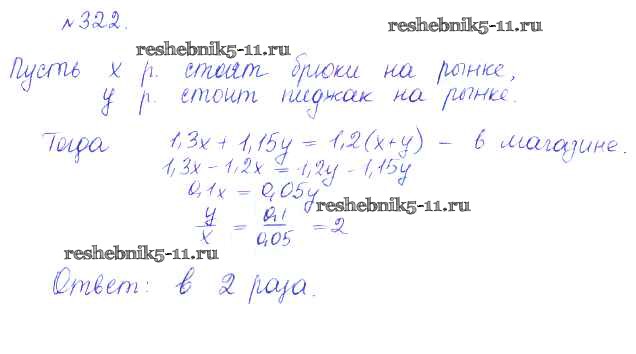 №322.
reshebnik5-11.ru
reshebnik5-11.ru
Пусть х р. стоят брюки на рынке,
у р. стоит пиджак на рынке.
Тогда 1,3x + 1,15y = 1,2(x+y) – в магазине.
1,3x – 1,2x = 1,2y – 1,15y
0,1x = 0,05y
reshebnik5-11.ru
y/x = 0,1/0,05 = 2
reshebnik5-11.ru
Ответ: в 2 раза.